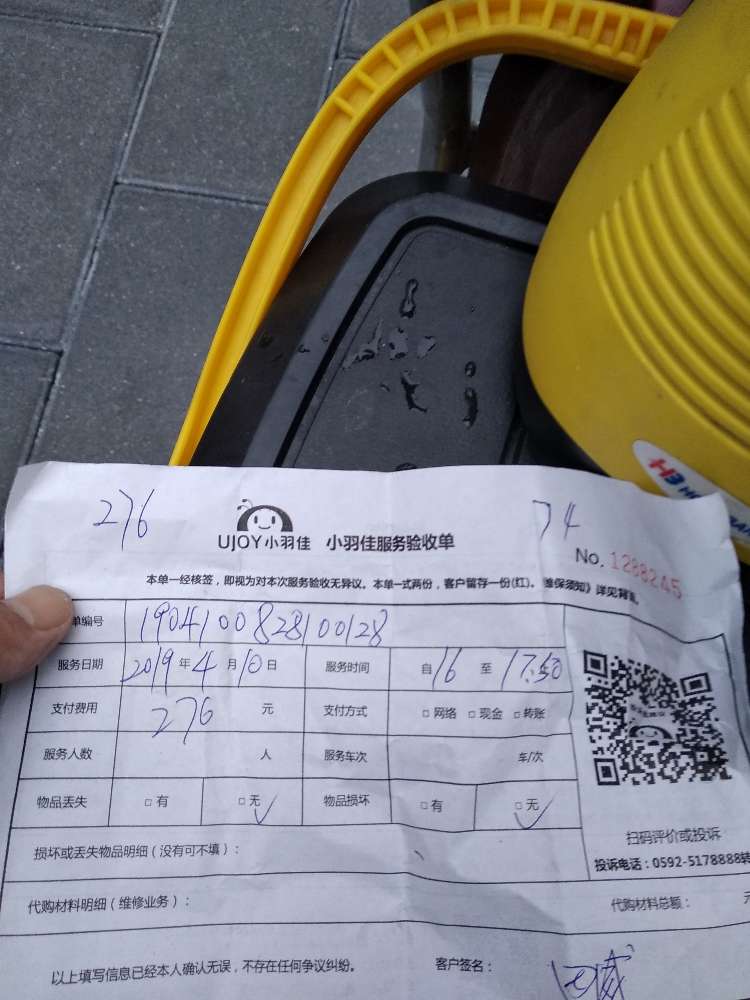 276
74
UJOY小羽佳 小羽佳服务验收单
No. 1288245
本单一经核签，即视为对本次服务验收无异议。本单一式两份，客户留存一份(红)。《维保须知》详见背面。
单编号 1904100828100128
服务日期 2019年4月10日 服务时间 自16至17:50
支付费用 276 元 支付方式 □网络 □现金 □转账
服务人数 人 服务车次 车/次
物品丢失 □有 □无✓ 物品损坏 □有 □无✓
扫码评价或投诉
损坏或丢失物品明细（没有可不填）：
投诉电话：0592-5178888转
代购材料明细（维修业务）： 代购材料总额：
以上填写信息已经本人确认无误，不存在任何争议纠纷。 客户签名：